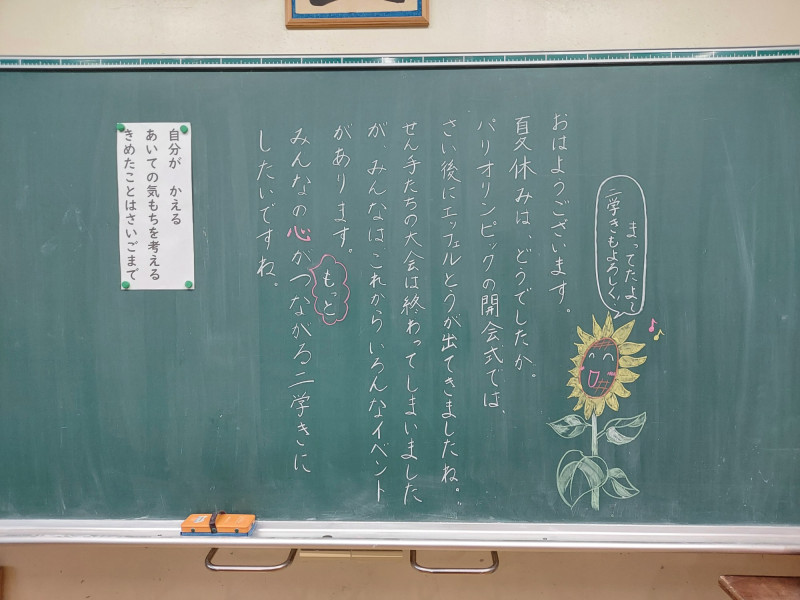 まってたよ〜
二学きもよろしく!
おはようございます。
夏休みは、どうでしたか。
パリオリンピックの開会式では、
さい後にエッフェルとうが出てきましたね。
せん手たちの大会は終わってしまいました
が、みんなはこれからいろんなイベント
があります。
もっと
みんなの心がつながる二学きに
したいですね。
自分が かえる
あいての気もちを考える
きめたことはさいごまで